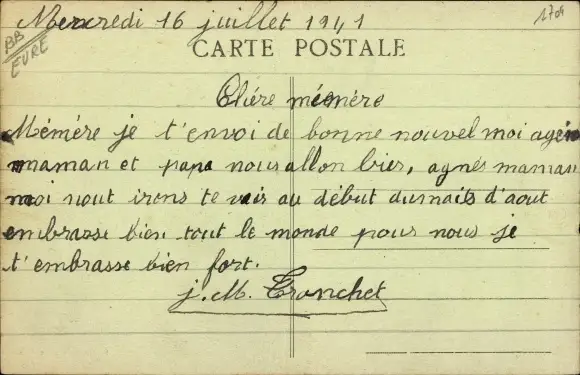 Mercredi 16 juillet 1941
1709
BB
EURE
CARTE POSTALE
Chère mémère
Mémère je t'envoi de bonne nouvel moi agnès
maman et papa nous allon bien, agnes maman
moi nout irons te voir au début du mois d'aout
embrasse bien tout le monde pour nous je
t'embrasse bien fort.
J. M. Tronchet